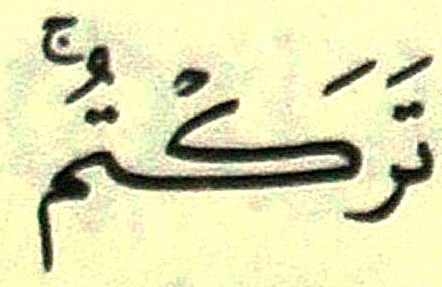 تَرَكْتُمۚ